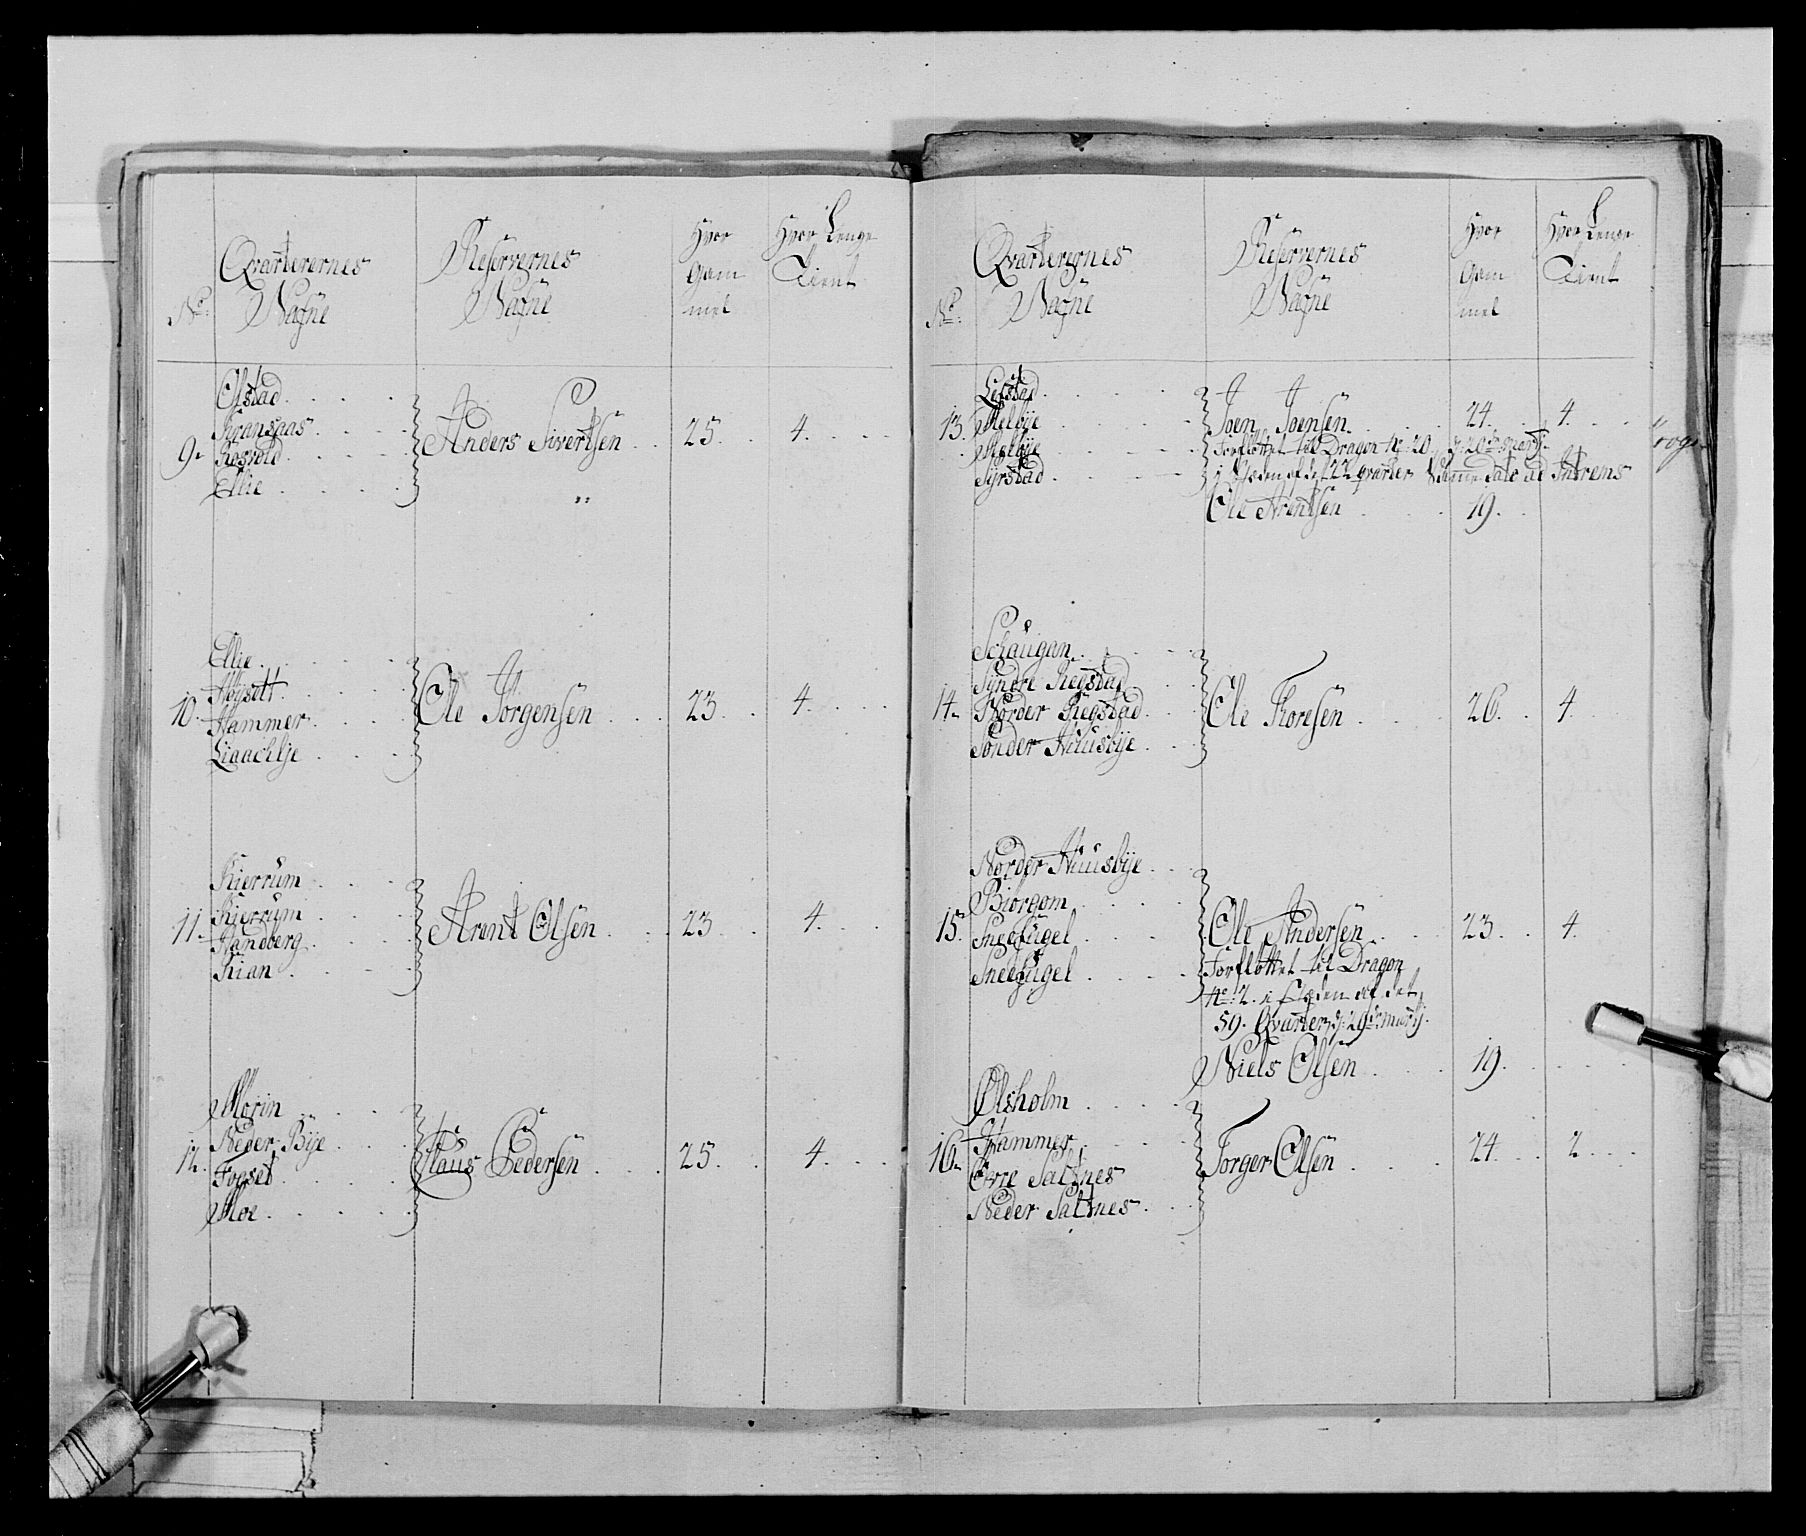 No: Qvarterernes Nafne
Reservernes Nafne
Hvor Gam mel
Hvor Lenge Tient
9. Olstad
Kransaas
Rosvold
Ellie
Anders Sivertsen 25. 4.
"
10. Ellie
Høysett
Hammer
Liaachlje
Ole Jörgensen 23. 4.
11. Kierrum
Kierrum
Randberg
Kian
Arent Olsen 23. 4.
12. Morin
Neder Bye
Foeset
Moe
Claus Pedersen 25. 4.
No: Qvarterernes Nafne
Reservernes Nafne
Hvor Gam mel
Hvor Lenge Tient
13. Leistad
Melbye
Melbye
Syrstad
Joen Joensen 24. 4.
Forflöttet til Dragon No: 20 d: 20de Martj
i Stæden af det 22 qvarter samme dato ad Intrems
Ole Arentsen 19.
14. Schaugan
Syndre Regstad
Norder Regstad
Sönder Huusbye
Ole Thoresen 26. 4.
15. Norder Huusbye
Biorgom
Sneefugel
Sneefugel
Ole Andersen 23. 4.
Forflöttet til Dragon
No: 2. i Stæden af det
59. Qvarter d: 29de Martj.
Niels Olsen 19.
16. Ølsholm
Hammer
Övre Saltnes
Neder Saltnes
Torger Olsen 24. 2.